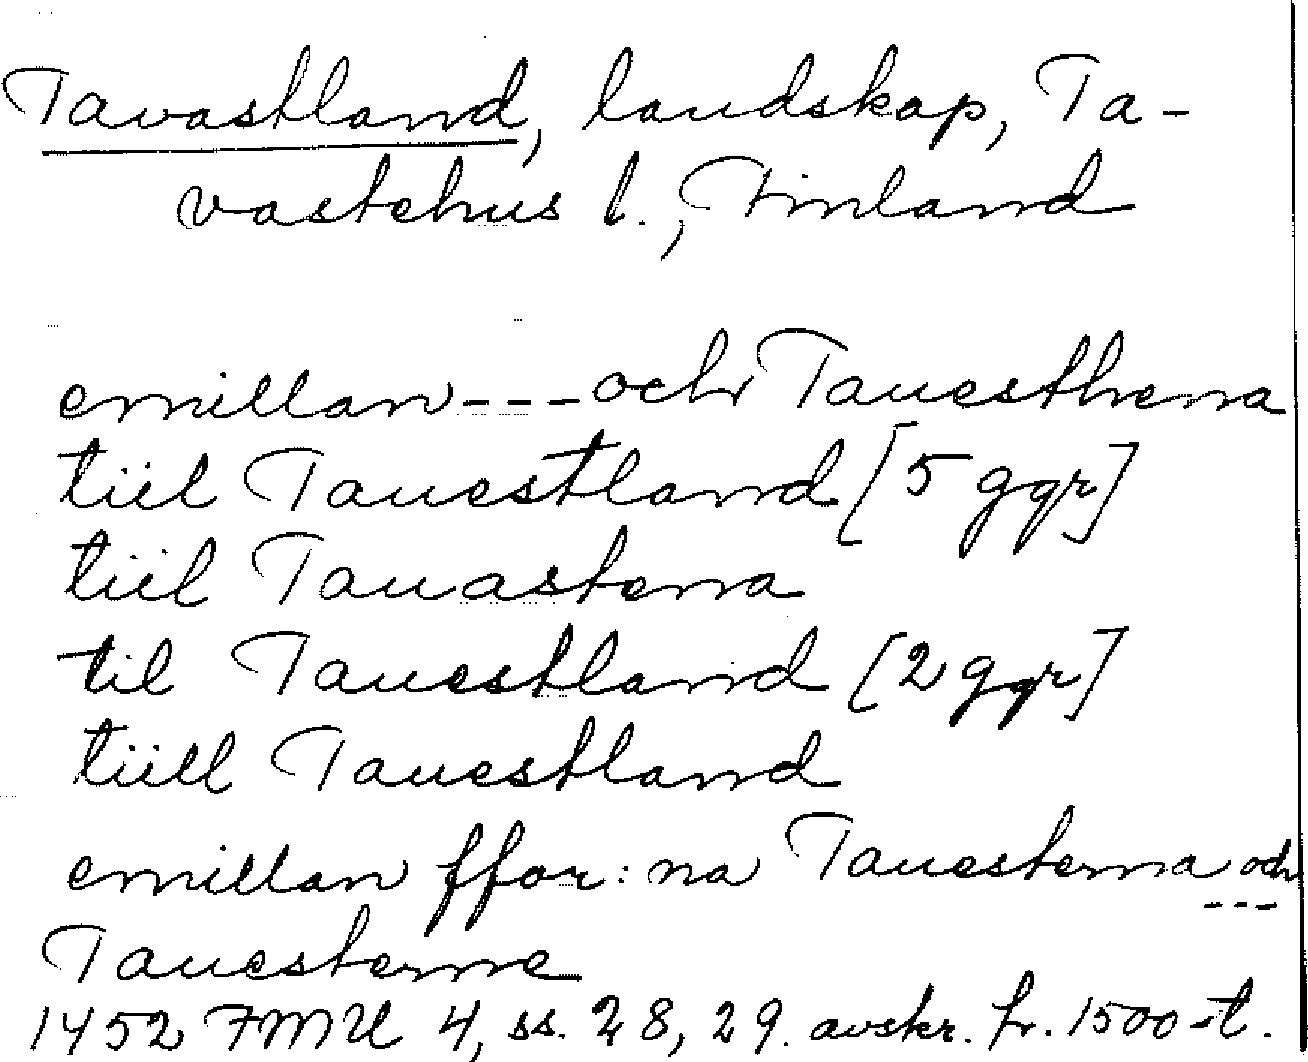 Tavastland, landskap, Ta-
vastehus l., Finland
emillan --- och Tauesthena
tiil Tauestland [5 ggr]
tiil Tauastena
til Tauestland [2 ggr]
tiill Tauestland
emillan ffor: na Tauesterna och ---
Tauesterne
1452 FMU 4, ss. 28, 29. avskr. fr. 1500-t.